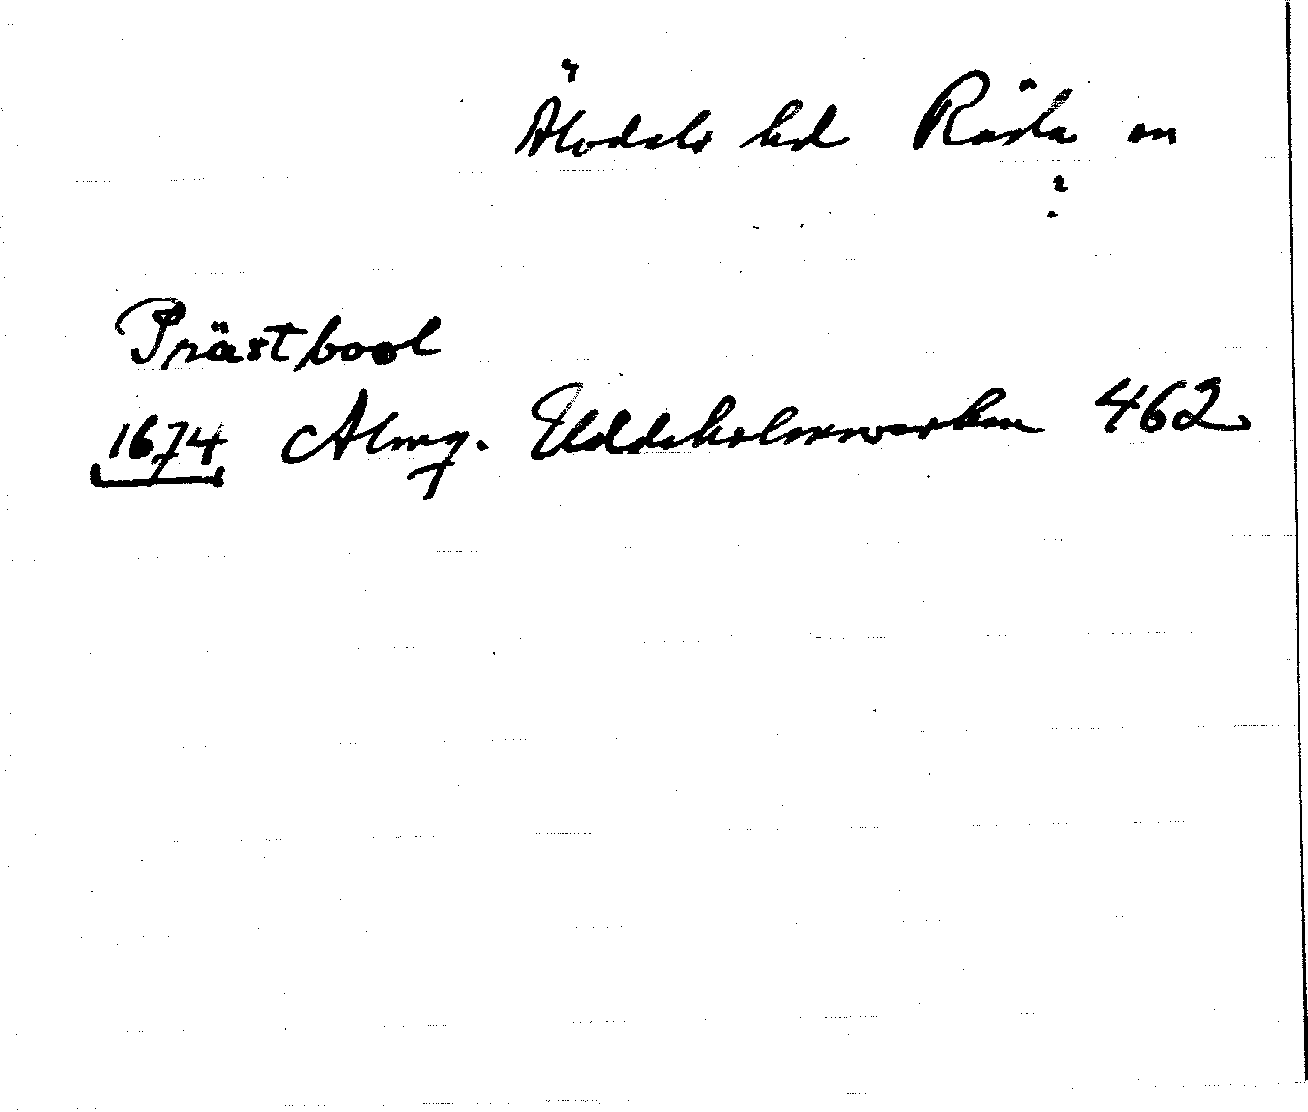 Älvdals hd Räda sn
?
Prästbool
1674 Almq. Uddeholmsverken 462